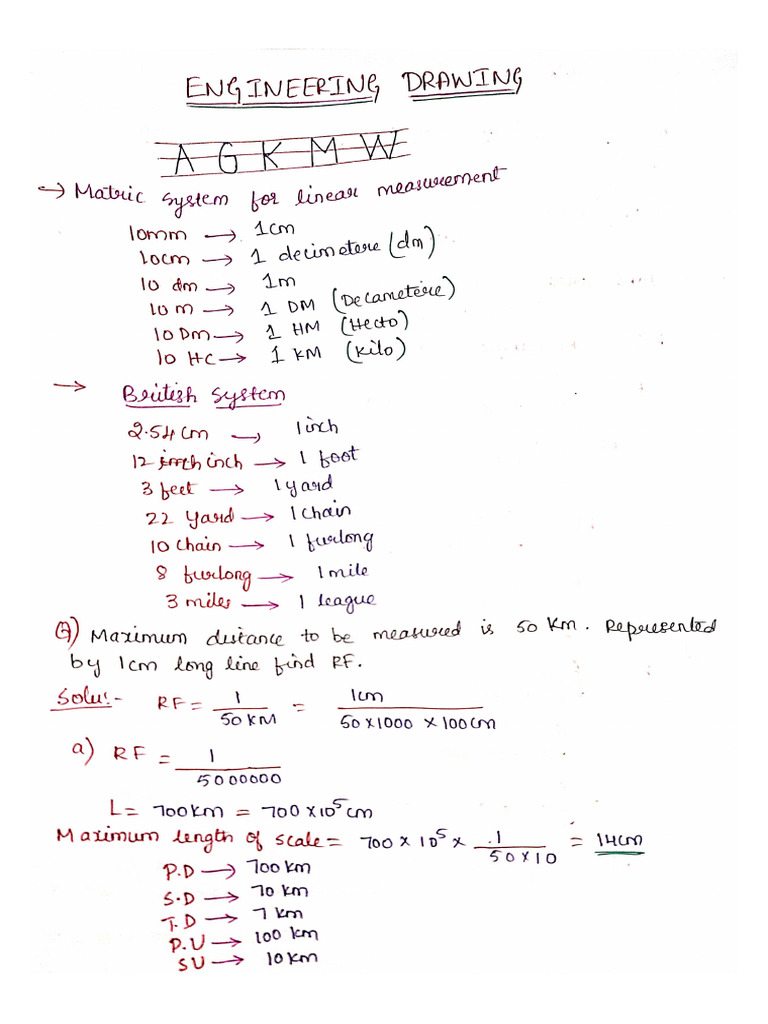 ENGINEERING DRAWING
A G K M W
→ Matric system for linear measurement
10mm → 1cm
10cm → 1 decimetere (dm)
10 dm → 1m
10 m → 1 DM (Decametere)
10 Dm → 1 HM (Hecto)
10 HC → 1 KM (Kilo)
→ British System
2.54 cm → 1 inch
12 inch → 1 foot
3 feet → 1 yard
22 Yard → 1 Chain
10 Chain → 1 furlong
8 furlong → 1 mile
3 miles → 1 league
Q) Maximum distance to be measured is 50 Km. Represented
by 1cm long line find RF.
Solu:- RF = 1/50 KM = 1cm/50x1000 x 100cm
a) RF = 1/5000000
L = 700km = 700 x 10⁵ cm
Maximum length of scale = 700 x 10⁵ x .1/50 x 10 = 14cm
P.D → 700 km
S.D → 70 km
T.D → 7 km
P.U → 100 km
SU → 10 km